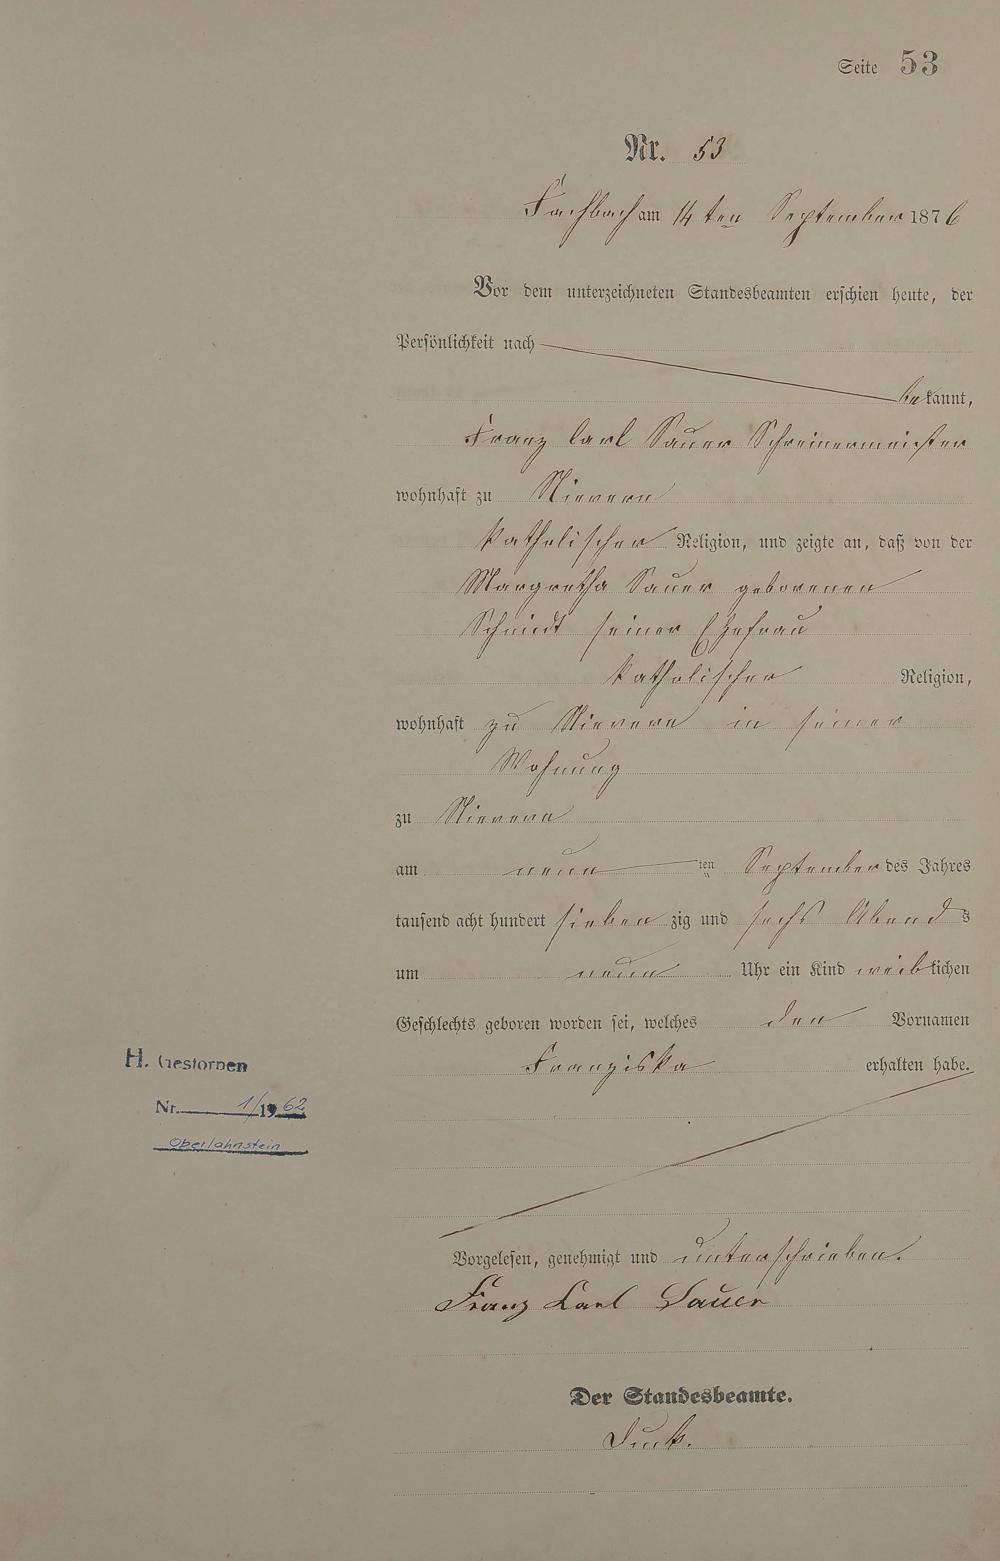 Seite 53
Nr. 53
Fachbach am 14ten September 1876
Vor dem unterzeichneten Standesbeamten erschien heute, der
Persönlichkeit nach
bekannt,
Franz Carl Sauer Schreinermeister
wohnhaft zu Nievern
katholischer Religion, und zeigte an, daß von der
Margretha Sauer geborenen
Schmidt seiner Ehefrau
katholischer Religion,
wohnhaft zu Nievern in seiner
Wohnung
zu Nievern
am neun ten September des Jahres
tausend acht hundert sieben zig und sechs Abends
um neun Uhr ein Kind weiblichen
Geschlechts geboren worden sei, welches den Vornamen
Franziska erhalten habe.
H. Gestorben
Nr. 1/1962
Oberlahnstein
Vorgelesen, genehmigt und unterschrieben.
Franz Carl Sauer
Der Standesbeamte.